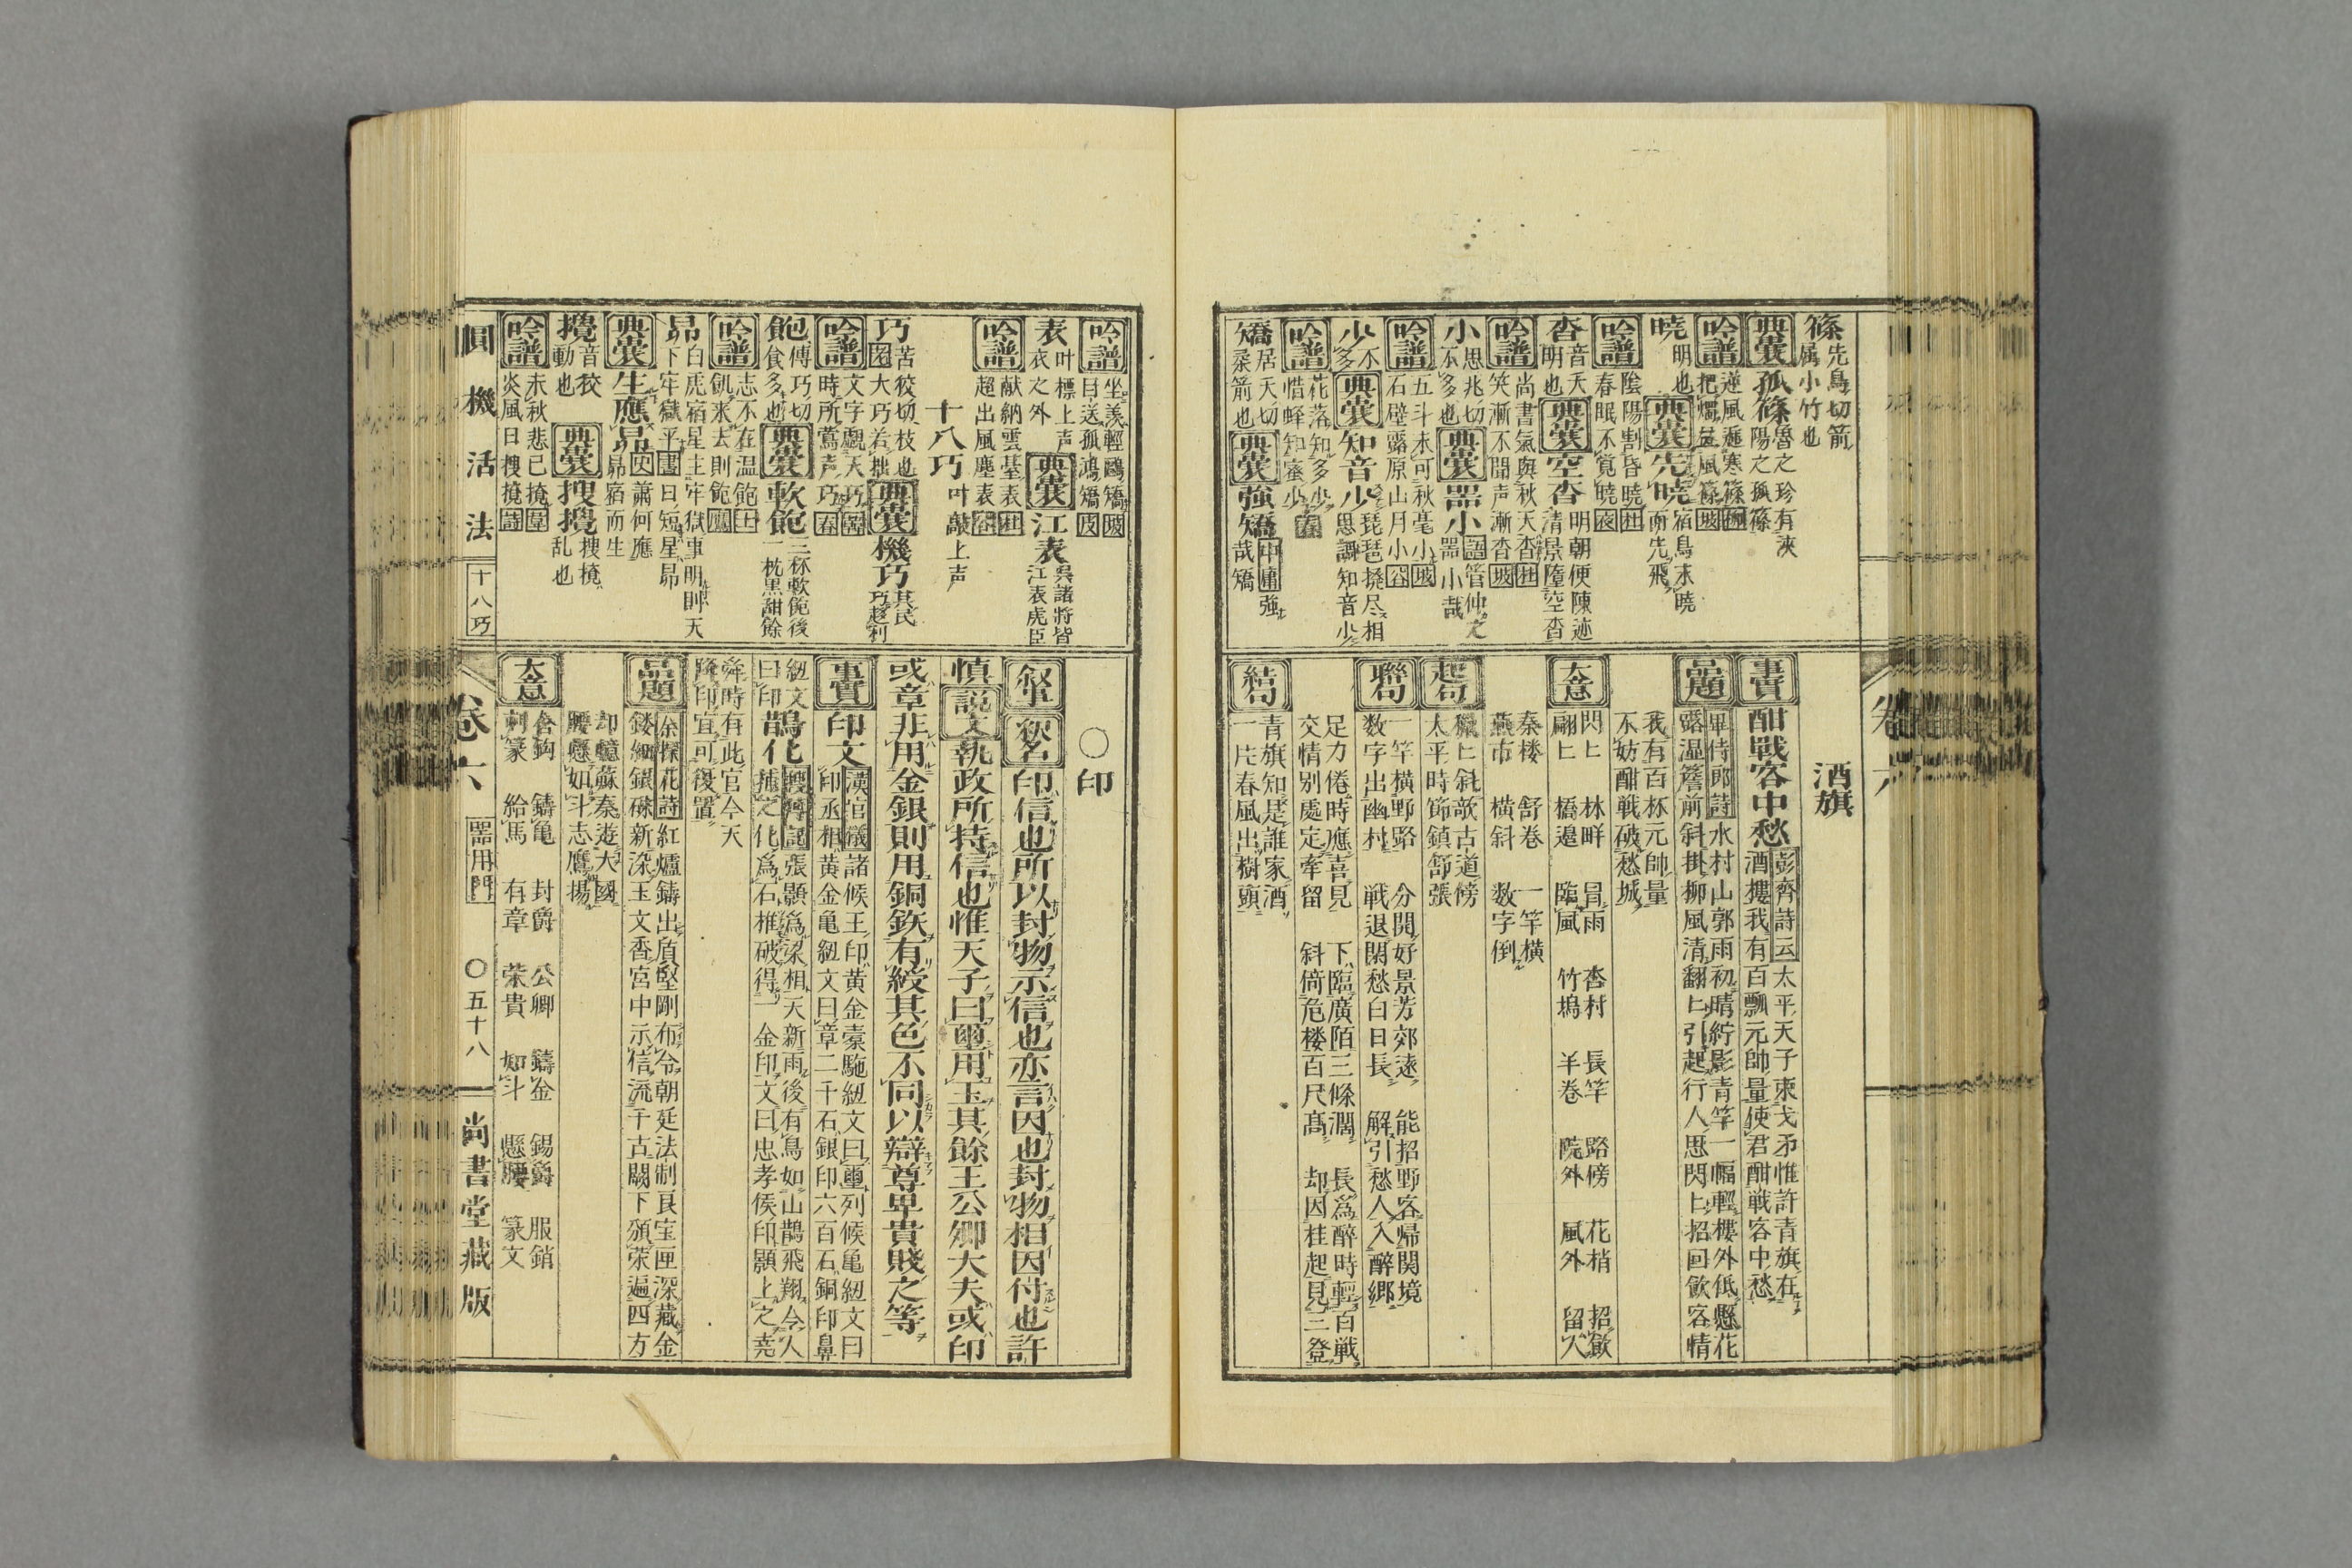 篠 先鳥切箭属小竹也
典嚢 孤篠 魯之珍有淡陽之孤篠
吟譜 逆風遞寒篠 把燭孟風篠 坡
暁 明也 典嚢 先暁 宿鳥未暁而先飛
吟譜 陰陽割昏暁 杜 春眠不覚暁 夜
杳 音夭明也 典嚢 空杳 明朝便陳迹清景墮空杳
吟譜 尚書氣與秋天杳 杜 笑漸不聞声漸杳 坡
小 思兆切不多也 典嚢 器小 語 管仲之器小哉
吟譜 五斗未可秋毫小 坡 石壁露原山月小 谷
少 不多 典嚢 知音少 琵琶撥尽相思調知音少
吟譜 花落知多少 春 惜蜂知蜜少
矯 居夭切桑箭也 典嚢 強矯 中庸 強哉矯
酒旗
事實 酣戰客中愁 彭齊詩云 太平天子束戈矛惟許青旗在酒樓我有百瓢元帥量使君酣戦客中愁
品題 畢侍郎詩 水村山郭雨初晴紵影青竿一幅輕樓外低懸花露温簷前斜掛柳風清翻〻引起行人思閃〻招回飲客情
我有百杯元帥量不妨酣戦破愁城
大意 閃〻 林畔 冒雨 杳村 長竿 路傍 花梢 招飲
翩〻 橋邉 臨風 竹塢 半巻 院外 風外 留人
秦楼 舒巻 一竿横
燕市 横斜 数字倒
起句 獵〻斜敧古道傍 太平時節鎮舒張
聯句 一竿横野路 分開好景芳郊遠 能招野客帰閑境
数字出幽村 戦退閑愁白日長 解引愁人入醉郷
足力倦時應喜見 下臨廣陌三條濶 長為醉時輕百戦
交情别處定牽留 斜倚危楼百尺髙 却因桂起見三登
結句 青旗知是誰家酒 一片春風出樹頭
吟譜 坐羨輕鷗矯 目送孤鴻矯 坡
表 叶標上声衣之外 典嚢 江表 呉諸将皆江表虎臣
吟譜 献納雲臺表 杜 超出風塵表 谷
十八巧 叶敲上声
巧 苦狡切枝也 老 大巧若拙 典嚢 機巧 其民巧趨利
吟譜 文字覷天巧 韓 時所鶯声巧 春
飽 博巧切食多也 典嚢 軟飽 三杯軟飽後一枕黒甜餘
吟譜 志不在温飽 王 飢来去則飽 鷹
昴 白虎宿星主牢獄事明則天下牢獄平 書 日短星昴
典嚢 生應昴 蕭何應昴宿而生
攪 音狡動也 典嚢 捜攪 捜撹乱也
吟譜 未秋悲已撹 炎風日捜撹 詩
圓機活法
十八巧
巻六
器用門
〇五十八
尚書堂藏版
〇印
叙事 釈名 印信也所以封物示信也亦言因也封物相因付也許
慎 説文 執政所持信也惟天子曰璽用玉其餘王公卿大夫或印
或章非用金銀則用銅鉄有綬其色不同以辯尊卑貴賤之等
事實 印文 漢官儀 諸候王印黄金橐駞紐文曰璽列候亀紐文曰印丞相黄金亀紐文曰章二千石銀印六百石銅印鼻
紐文曰印 鵲化 捜神記 張顥為梁相天新雨後有鳥如山鵲飛翔令人捶之化為石椎破得一金印文曰忠孝侯印顥上之尭
舜時有此官今天降印宜可復置
品題 余探花詩 紅爐鑄出貭堅剛布令朝廷法制良宝匣深藏金鏤細鎮磔新深玉文香宮中示信流千古闕下頒栄遍四方
却憶蘇秦遊大國腰懸如斗志鷹揚
大意 金鈎 鑄亀 封爵 公卿 鑄金 錫爵 服銷
刺篆 給馬 有章 栄貴 如斗 懸腰 篆文